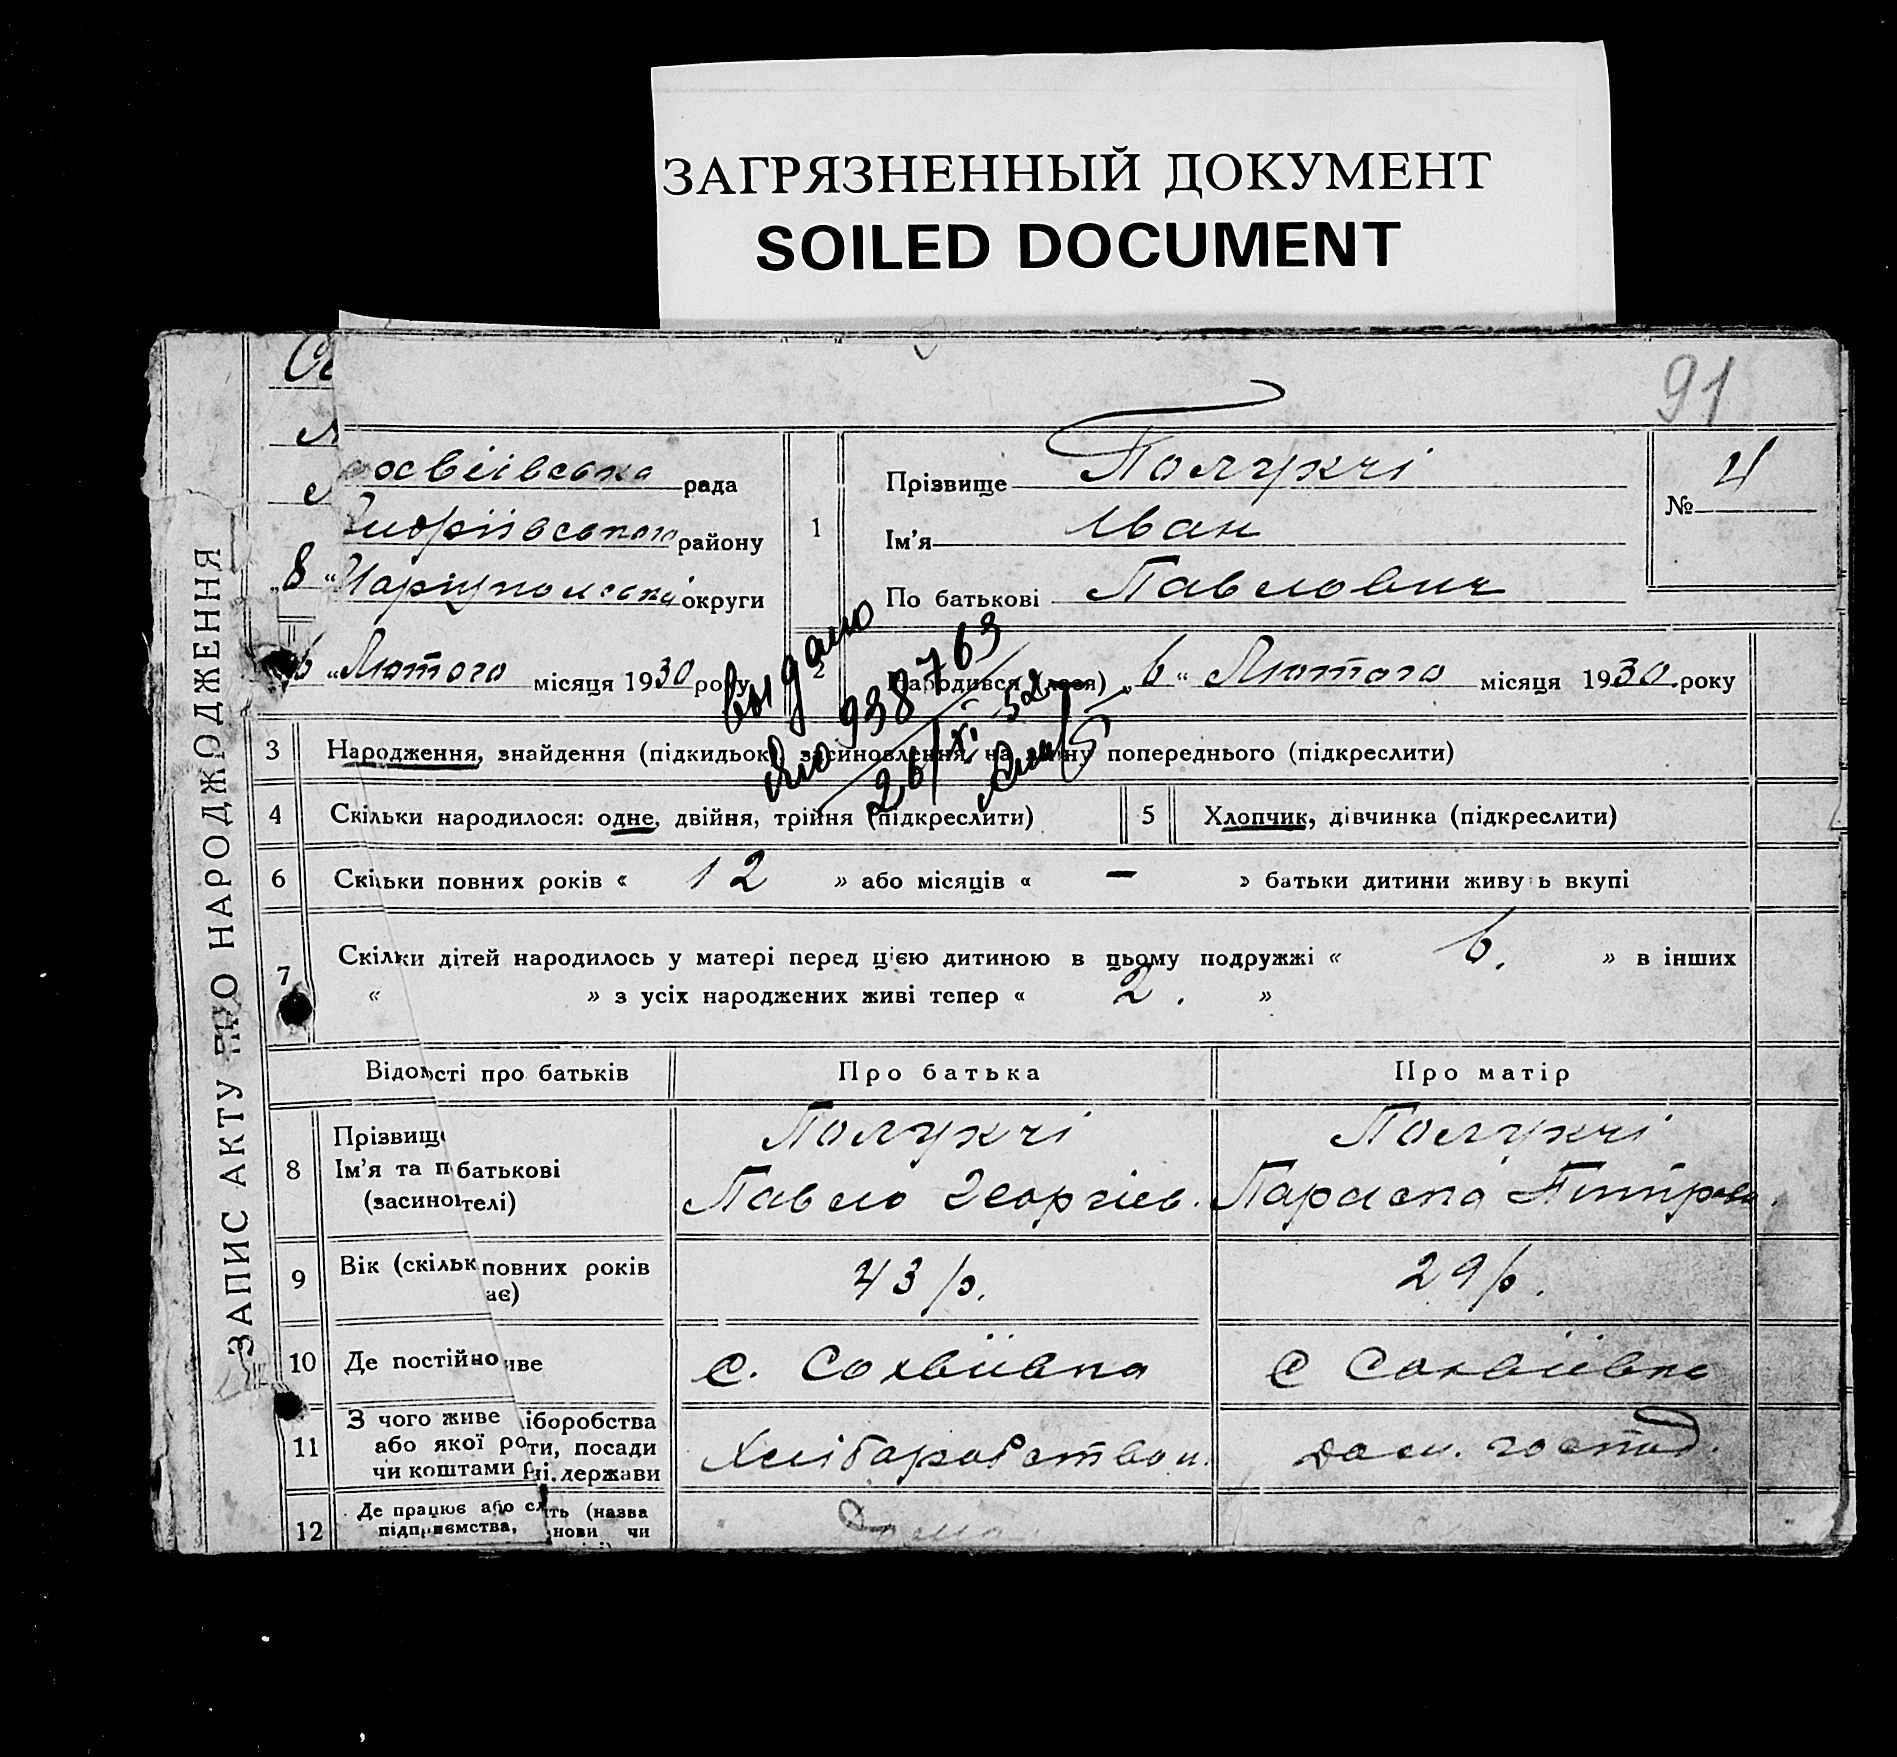 ЗАГРЯЗНЕННЫЙ ДОКУМЕНТ
SOILED DOCUMENT
91
ЗАПИС АКТУ ПРО НАРОДЖЕННЯ
рада
району
округи
„8“
6 „Лютого місяця 1930 року
1
Прізвище Полукчі
Ім’я Іван
По батькові Павлович
№ 4
2 Народився (лася) „6“ Лютого місяця 1930 року
выдано
938763
3 Народження, знайдення (підкидьок) засиновлення, на зміну попереднього (підкреслити)
4 Скільки народилося: одне, двійня, трійня (підкреслити)
5 Хлопчик, дівчинка (підкреслити)
6 Скільки повних років « 12 » або місяців « – » батьки дитини живуть вкупі
7 Скільки дітей народилось у матері перед цією дитиною в цьому подружжі « 6. » в інших
« » з усіх народжених живі тепер « 2. »
Відомості про батьків Про батька Про матір
8 Прізвище Полукчі Полукчі
Ім’я та п батькові Павло Георгіев. Параска
(засино телі)
9 Вік (скільк повних років 43 р. 29 р.
ає)
10 Де постійно иве с. Сохвіївка с Сохвіївка
11 З чого живе іборобства
або якої ро ти, посади Хліборобством дом. господ.
чи коштами держави
12 Де працює або сл ить (назва Дома
підприємства, нови чи